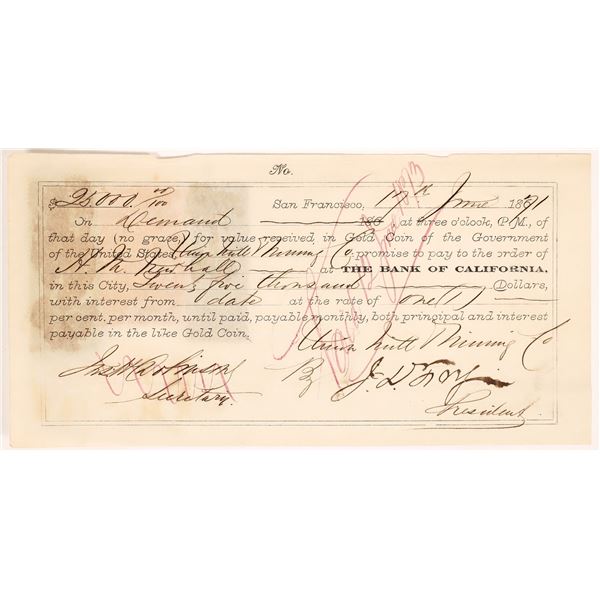 No.
$25000 00/100 San Francisco, 17th June 1871
On Demand 186 at three o'clock, P.M., of
that day (no grace,) for value received, in Gold Coin of the Government
of the United States, Union Mill Mining Co promise to pay to the order of
H. M. at THE BANK OF CALIFORNIA,
in this City, Twenty five thousand Dollars,
with interest from date at the rate of One (1)
per cent. per month, until paid, payable monthly, both principal and interest
payable in the like Gold Coin.
Union Mill Mining Co
By J. D. Fry
Secretary. President